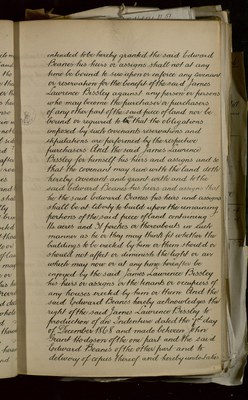 intended to be hereby granted the said Edward
Beanes his heirs or assigns shall not at any
time be bound to sue upon or enforce any covenant
or reservation for the benefit of the said James
Lawrence Bissley against any person or persons
who may become the purchaser or purchasers
of any other part of the said piece of land nor be
bound or required to that the obligations
imposed by such covenants reservations and
stipulations are performed by the respective
purchasers And the said James Lawrence
Bissley for himself his heirs and assigns and so
that the covenant may run with the land doth
hereby covenant and grant with and to the
said Edward Beanes his heirs and assigns that
he the said Edward Beanes his heirs and assigns
shall be at liberty to build upon the remaining
portions of the said piece of land containing
acres and perches or thereabouts in such
manner as he or they may think fit whether the
buildings to be erected by him or them should or
should not affect or diminish the light or air
which may now or at any time hereafter be
enjoyed by the said James Lawrence Bissley
his heirs or assigns or the tenants or occupiers of
any Houses erected by him or them And the
said Edward Beanes hereby acknowledges the
right of the said James Lawrence Bissley to
production of the Indenture dated the day
of December 1868 and made between John
Grant Hodgson of the one part and the said
Edward Beanes of the other part and to
delivery of copies thereof and hereby undertakes